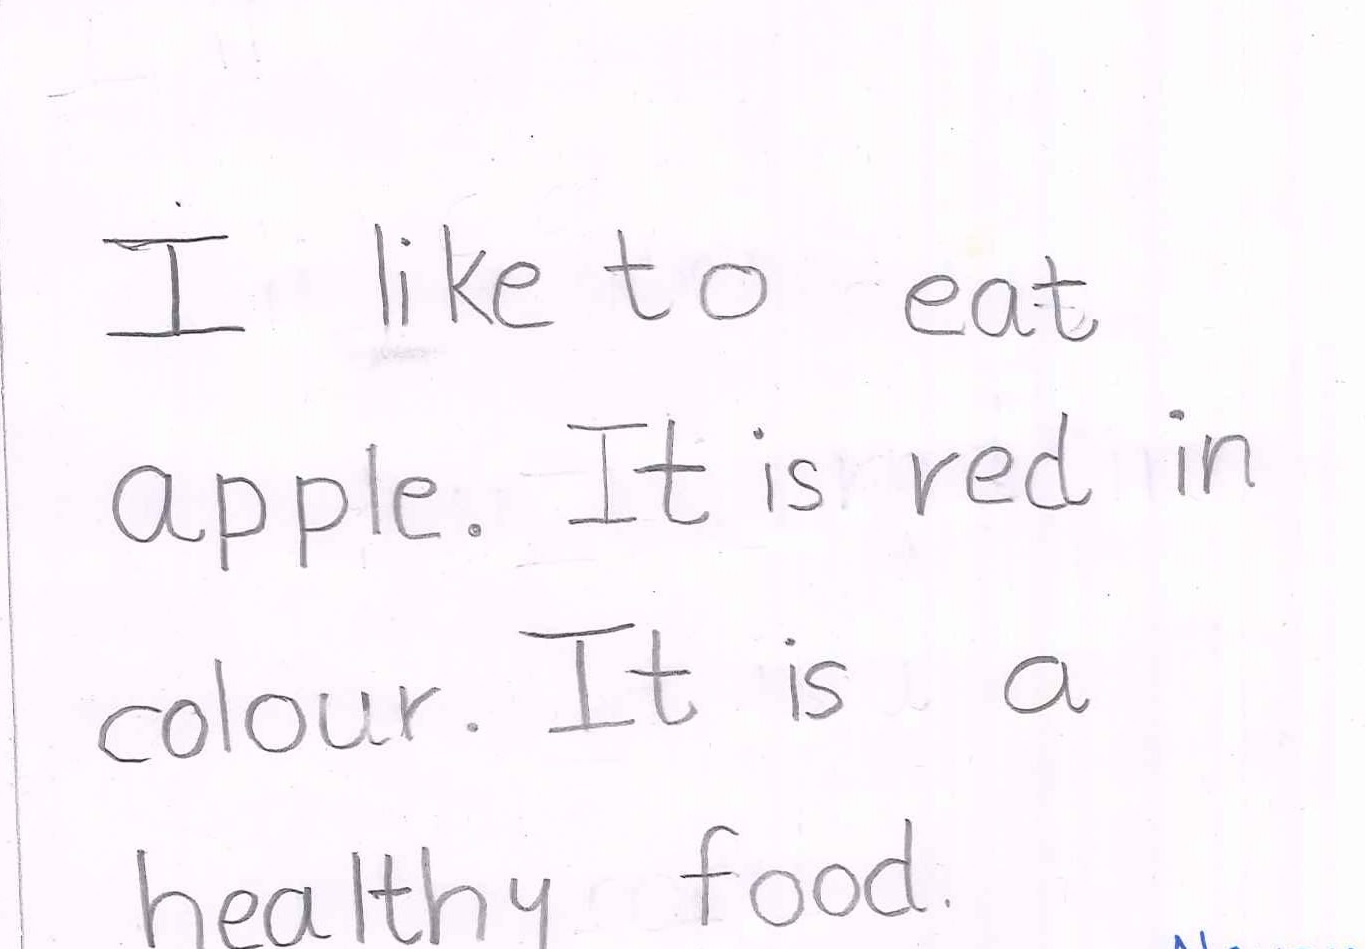 I like to eat
apple. It is red in
colour. It is a
healthy food.